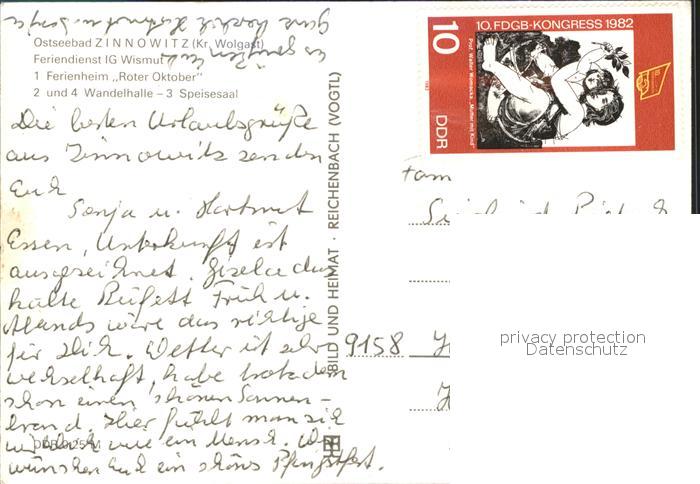 Ostseebad ZINNOWITZ (Kr. Wolgast)
Feriendienst IG Wismut
1 Ferienheim „Roter Oktober"
2 und 4 Wandelhalle – 3 Speisesaal
Die besten Urlaubsgrüße
aus Zinnowitz senden
Euch
Sonja u. Hartmut
Essen, Unterkunft ist
ausgezeichnet. Gisela das
kalte Büfett Früh u.
Abends wäre das richtige
für Dich. Wetter ist sehr
wechselhaft, habe trotzdem
schon einen schönen Sonnen-
brand. Hier fühlt man sich
wirklich wie ein Mensch. Wir
wünschen Euch ein schönes Pfingstfest.
BILD UND HEIMAT · REICHENBACH (VOGTL)
10. FDGB-KONGRESS 1982
10
DDR
Prof. Walter Womacka „Mutter mit Kind"
1982
Fam
9158
privacy protection
Datenschutz